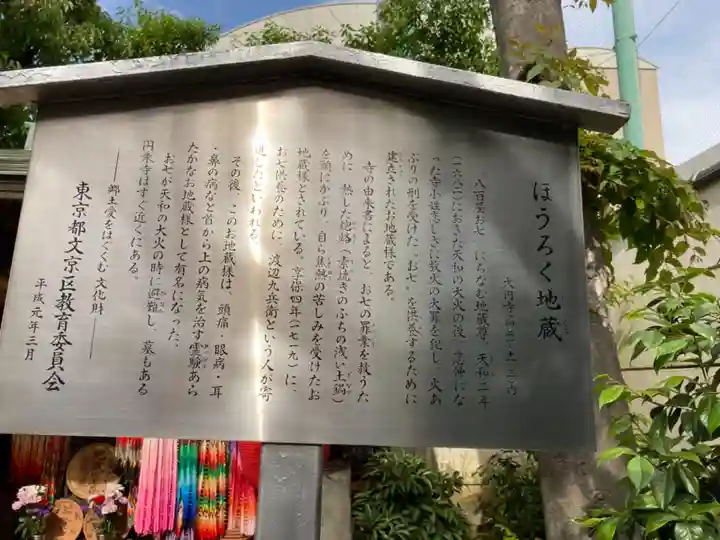 ほうろく地蔵
大円寺
八百屋お七にちなむ地蔵尊。天和二年
(一六八二)におきた天和の大火の後、恋仲にな
った寺小姓恋しさに放火の大罪を犯し、火あ
ぶりの刑を受けた〝お七〟を供養するために
建立されたお地蔵様である。
寺の由来書によると、お七の罪業を救うた
めに、熱した焙烙(素焼きのふちの浅い土鍋)
を頭にかぶり、自ら焦熱の苦しみを受けたお
地蔵様とされている。享保四年(一七一九)に、
お七供養のために、渡辺九兵衛という人が寄
進したといわれる。
その後、このお地蔵様は、頭痛・眼病・耳
・鼻の病など首から上の病気を治す霊験あら
たかなお地蔵様として有名になった。
お七が天和の大火の時に避難し、墓もある
円乗寺はすぐ近くにある。
――郷土愛をはぐくむ文化財――
東京都文京区教育委員会
平成元年三月